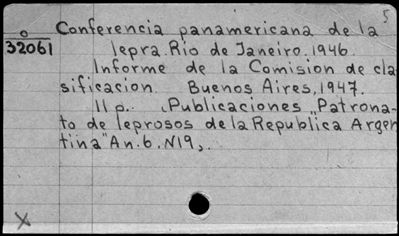 5
o Conferencia panamericana de la
32061 lepra. Rio de Janeiro. 1946.
Informe de la Comision de cla
sificacion. Buenos Aires, 1947.
11 p. Publicaciones „Patrona-
to de leprosos de la Republica Argen
tina" An. 6. N19,.
X